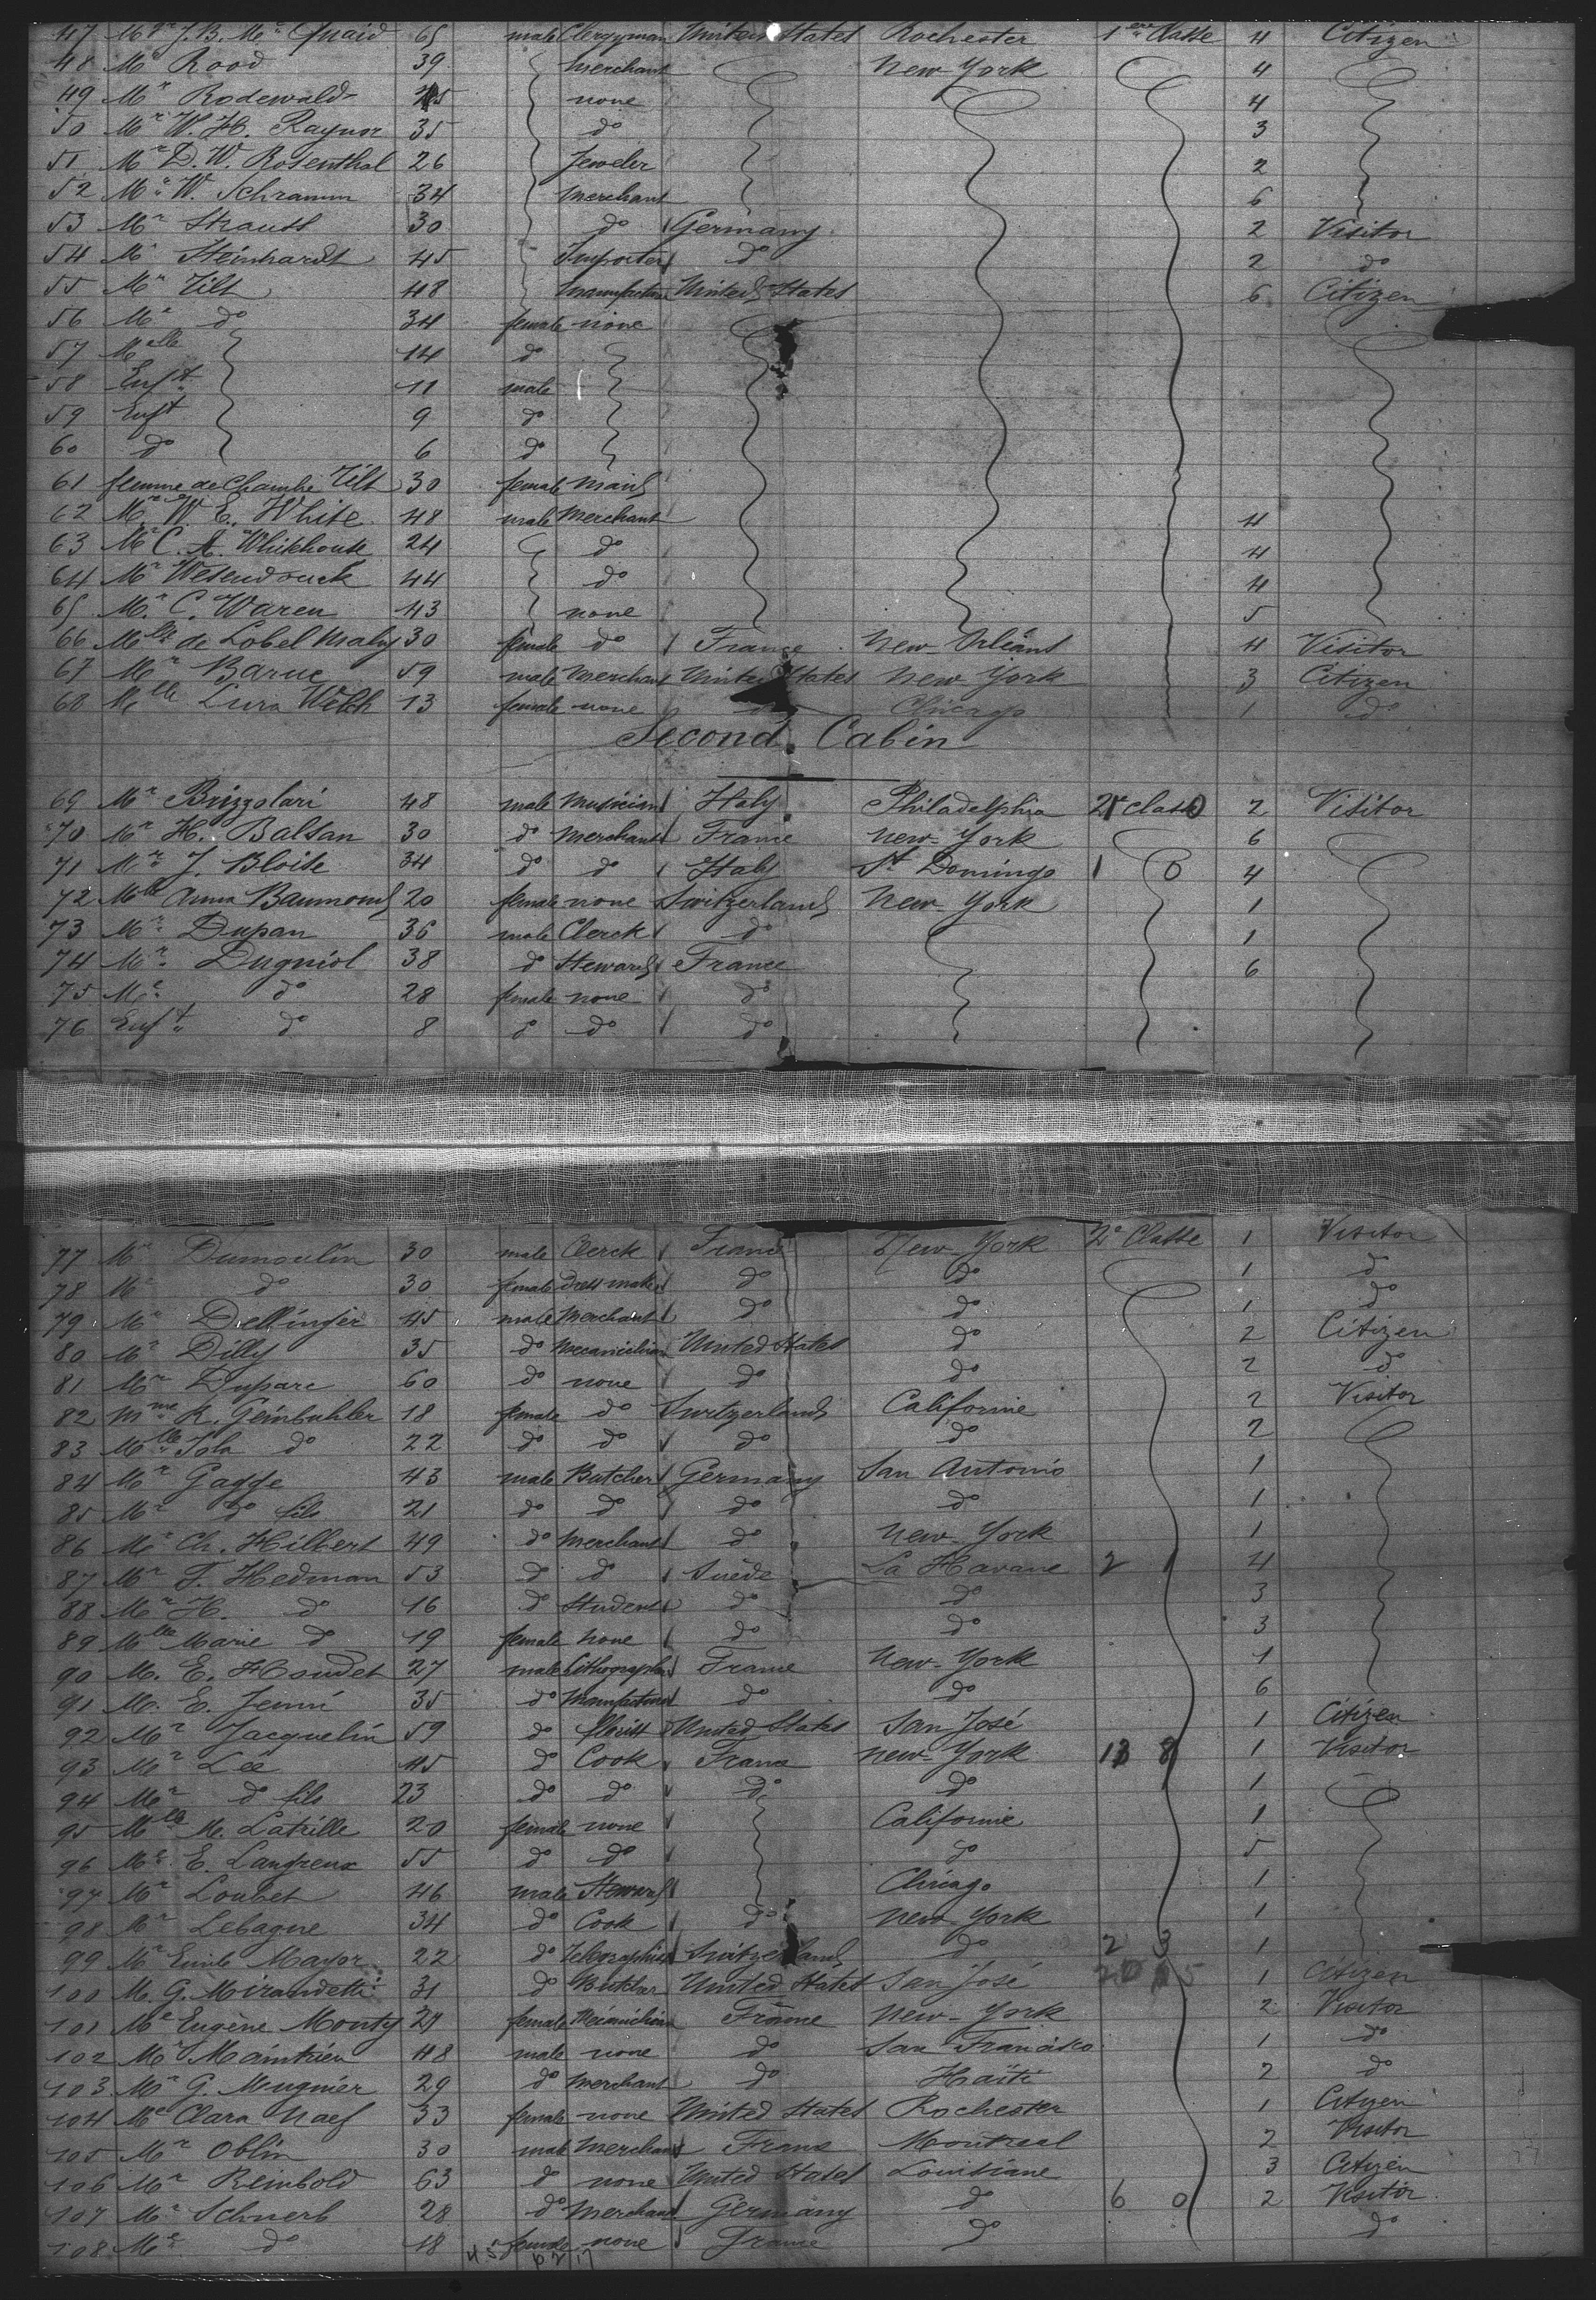 47 Mgr J. B. Mc Quaid 65 male Clergyman United States Rochester 1ere Classe 4 Citizen
48 Mr Rood 39 merchant New York 4
49 Mr Rodewald none 4
50 Mr W. H. Raynor 35 do 3
51 Mr D. W. Rosenthal 26 Jeweler 2
52 Mr W. Schramm 34 merchant 6
53 Mr Strauss 30 do Germany 2 Visitor
54 Mr Steinhardt 45 Importer do 2 do
55 Mr Tilt 48 United States 6 Citizen
56 Me do 34 female none
57 Melle 14 do
58 Enft 11 male
59 Enft 9 do
60 do 6 do
61 femme de Chambre Tilt 30 female maid
62 Mr W. E. White 48 male Merchant 4
63 Mr C. A. Whitehouse 24 do 4
64 Mr Wesendouck 44 do 4
65 Mr C. Waren 43 none 5
66 Melle de Lobel Mahy 30 female do France New Orléans 4 Visitor
67 Mr Baruc 59 male Merchant United States New York 3 Citizen
68 Melle Lura Welch 13 female none do Chicago 1 do
Second Cabin
69 Mr Brizzolari 48 male Musician Italy Philadelphia 2e classe 2 Visitor
70 Mr H. Balsan 30 do Merchant France New-York 6
71 Mr J. Bloise 34 do do Italy St Domingo 1 0 4
72 Melle Anna Baumond 20 female none Switzerland New-York 1
73 Mr Dupan 36 male Clerck do 1
74 Mr Dugniol 38 do Steward France 6
75 Me do 28 female none do
76 Enft do 8 do do do
77 Mr Dumoulin 30 male Clerck France New-York 2e Classe 1 Visitor
78 Me do 30 female dress maker do do 1 do
79 Mr Dellinger 45 male Merchant do do 1 do
80 Mr Dilly 35 do mecanicien United States do 2 Citizen
81 Mr Duparc 60 do none do do 2 do
82 Mme R. Geinbuhler 18 female do Switzerland Californie 2 Visitor
83 Melle Iola do 22 do do do do 2
84 Mr Gagge 43 male Butcher Germany San Antonio 1
85 Mr do fils 21 do do do do 1
86 Mr Ch. Hilbert 49 do Merchant do New-York 1
87 Mr F. Hedman 53 do do Suède La Havane 2 1 4
88 Mr H. do 16 do Student do do 3
89 Melle Marie do 19 female none do do 3
90 M. E. Houdet 27 male Lithographer France New-York 1
91 M. E. Jenni 35 do Manufacturer do do 6
92 Mr Jacquelin 59 do United States San José 1 Citizen
93 Mr Lée 45 do Cook France New-York 13 8 1 Visitor
94 Mr do fils 23 do do do do 1
95 Melle M. Latrille 20 female none Californie 1
96 Me E. Langreux 55 do do do 5
97 Mr Loubet 46 male Steward Chicago 1
98 Mr Lebague 34 do Cook do New-York 1
99 Mr Emile Mayor 22 do Telegraphist Switzerland do 2 3 1
100 M. G. Mirandetti 31 do Butcher United States San José 1 Citizen
101 Me Eugène Monty 27 female Mécanicien France New-York 2 Visitor
102 Mr Maintrieu 48 male none do San Francisco 1 do
103 Mr G. Meugnier 29 do Merchant do Haïti 2 do
104 Me Clara Naef 33 female none United States Rochester 1 Citizen
105 Mr Oblin 30 male Merchant France Montreal 2 Visitor
106 Mr Reinbold 63 do none United States Louisiane 3 Citizen
107 Mr Schnerb 28 do Merchant Germany do 6 0 2 Visitor
108 Me do 18 female none France do do